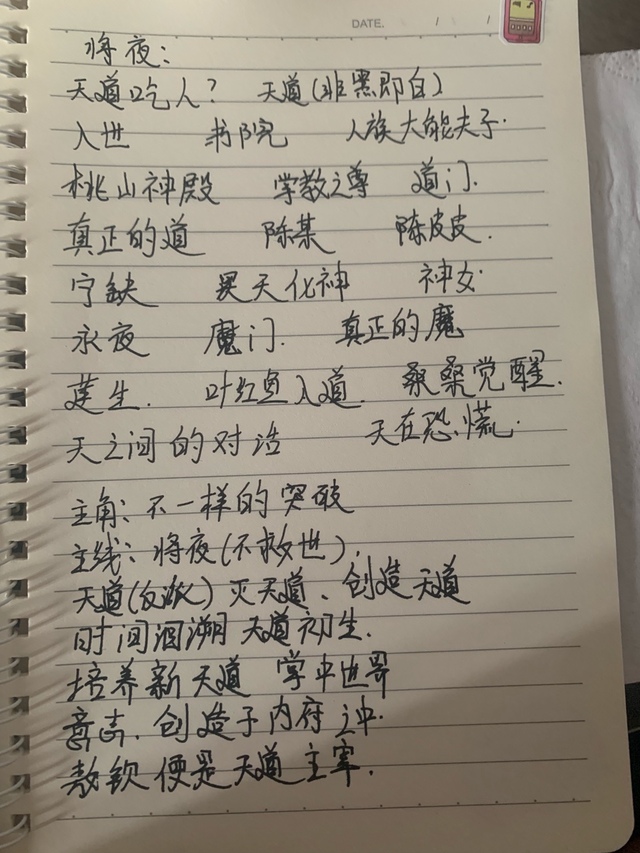 DATE. / /
将夜:
天道吃人? 天道(非黑即白)
入世 书院 人族大能夫子.
桃山神殿 掌教之尊 道门.
真正的道 陈某 陈皮皮.
宁缺 昊天化神 神女.
永夜 魔门. 真正的魔
莲生. 叶红鱼入道. 桑桑觉醒.
天之间的对话 天在恐慌.
主角: 不一样的突破
主线: 将夜(不救世).
天道(反派) 灭天道、创造天道
时间洄溯 天道初生.
培养新天道 掌中世界
意志. 创造于内府之中.
便是天道主宰.